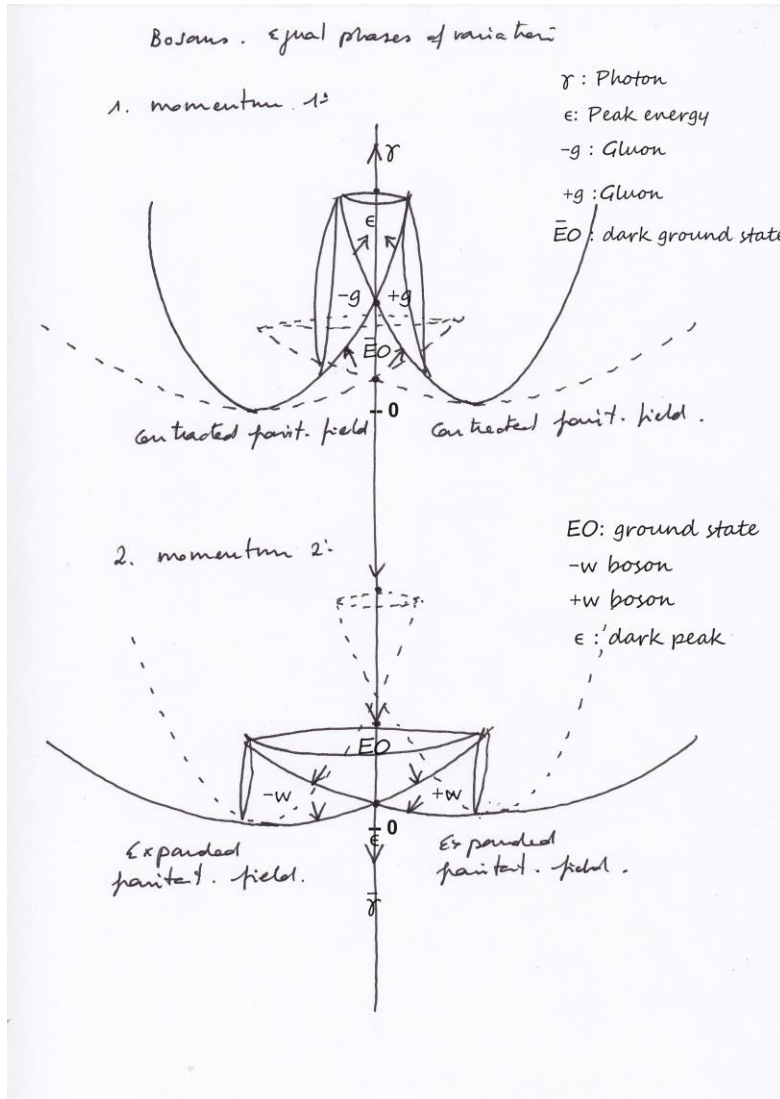 Bosons. Equal phases of variation
1. momentum 1ª
γ : Photon
ϵ: Peak energy
-g : Gluon
+g : Gluon
ĒO : dark ground state
γ
ϵ
-g +g
ĒO
0
Contracted field
Contracted field.
2. momentum 2ª
EO: ground state
-w boson
+w boson
ϵ : dark peak
EO
-w +w
0
ϵ̄
Expanded field.
Expanded field.
γ̄